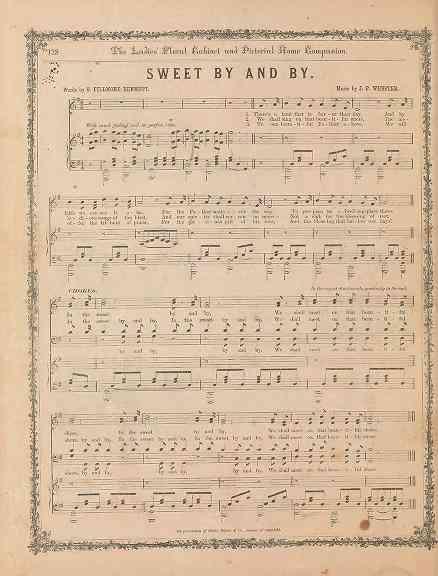 128
The Ladies' Floral Cabinet and Pictorial Home Companion.
SWEET BY AND BY.
Words by S. FILLMORE BENNETT.
Music by J. P. WEBSTER.
With much feeling and in perfect time.
1. There's a land that is fairer than day, And by
2. We shall sing on that beau-ti-ful shore, The
3. To our boun-ti-ful Fa-ther a-bove, We will
faith we can see it a-far, For the Fa-ther waits o-ver the way, To pre-pare us a dwell-ing place there.
songs of the blest, And our spir-its shall sor-row no more, Not a sigh for the bless-ing of rest.
of-fer the tribute of praise, For the glo-rious gift of his love, And the bless-ings that hal-low our days!
CHORUS.
In the sweet by and by, We shall meet on that beau-ti-ful
In the sweet by and by, In the sweet by and by, We shall meet on that beau-ti-ful
by and by, by and by, We shall meet on that beau-ti-ful
shore, In the sweet by and by, We shall meet on that beau-ti-ful shore.
shore, by and by, In the sweet by and by, In the sweet by and by, We shall meet on that beau-ti-ful shore.
shore, by and by, by and by, We shall meet on that beau-ti-ful shore.